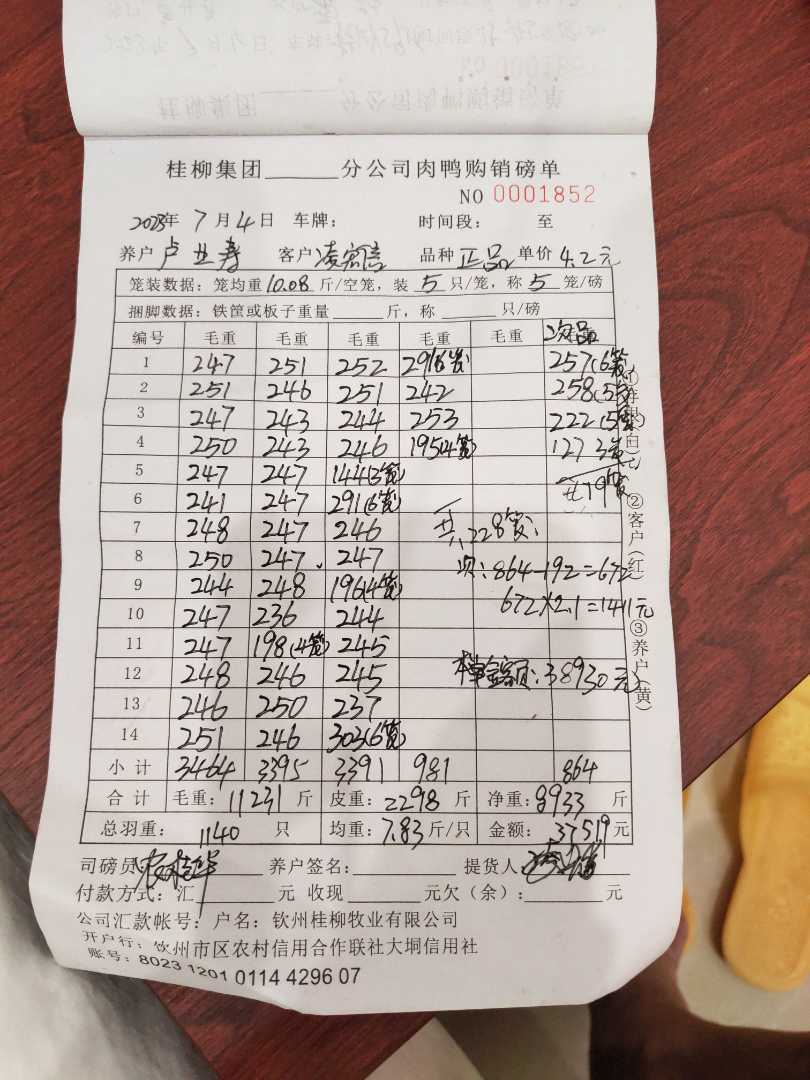 桂柳集团______分公司肉鸭购销磅单
NO 0001852
2023年 7 月 4 日 车牌: 时间段: 至
养户 卢业寿 客户 凌宏信 品种 正品 单价 4.2 元
笼装数据: 笼均重 10.08 斤/空笼, 装 5 只/笼, 称 5 笼/磅
捆脚数据: 铁筐或板子重量______斤, 称______只/磅
编号 毛重 毛重 毛重 毛重 毛重 次品
1 247 251 252 291(6笼) 257(6笼)
2 251 246 251 242 258(5笼)
3 247 243 244 253 222(5笼)
4 250 243 246 195(4笼) 127 3笼
5 247 247 144(3笼) 共19笼
6 241 247 291(6笼)
7 248 247 246 共228笼
8 250 247 247 次:864-192=672
9 244 248 196(4笼) 672×2.1=1411元
10 247 236 244
11 247 198(4笼) 245
12 248 246 245 本单金额:38930元
13 246 250 237
14 251 246 303(6笼)
小计 3464 3395 3391 981 864
合计 毛重: 11231 斤 皮重: 2298 斤 净重: 8933 斤
总羽重: 1140 只 均重: 7.83 斤/只 金额: 37519 元
司磅员 养户签名: 提货人
付款方式: 汇______元 收现______元欠(余):______元
公司汇款帐号: 户名: 钦州桂柳牧业有限公司
开户行: 钦州市区农村信用合作联社大垌信用社
账号: 8023 1201 0114 4296 07
②客户(红)
③养户(黄)